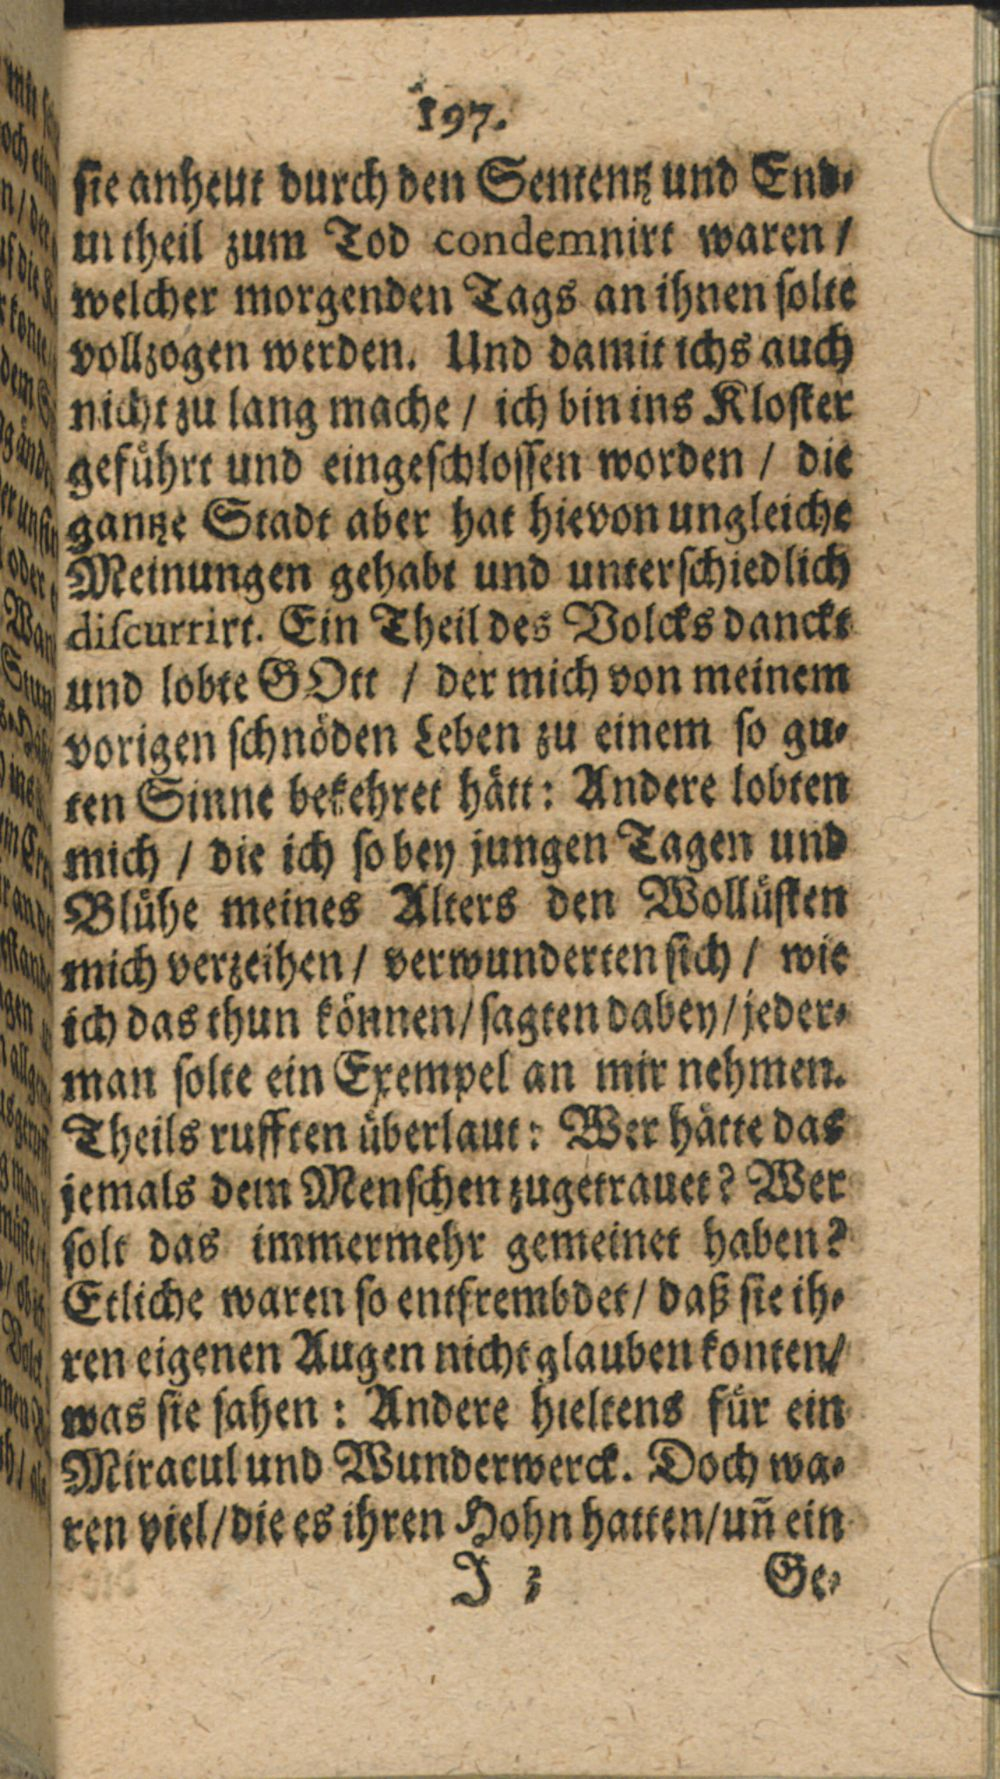 197.
sie anheut durch den Sententz und End-
urtheil zum Tod condemnirt waren /
welcher morgenden Tags an ihnen solte
vollzogen werden. Und damit ichs auch
nicht zu lang mache / ich bin ins Kloster
geführt und eingeschlossen worden / die
gantze Stadt aber hat hievon ungleiche
Meinungen gehabt und unterschiedlich
discurrirt. Ein Theil des Volcks danckt
und lobte GOtt / der mich von meinem
vorigen schnöden Leben zu einem so gu-
ten Sinne bekehret hätt: Andere lobten
mich / die ich so bey jungen Tagen und
Blühe meines Alters den Wollüsten
mich verzeihen / verwunderten sich / wie
ich das thun können / sagten dabey / jeder-
man solte ein Exempel an mir nehmen.
Theils rufften überlaut: Wer hätte das
jemals dem Menschen zugetrauet? Wer
solt das immermehr gemeinet haben?
Etliche waren so entfrembdet / daß sie ih-
ren eigenen Augen nicht glauben konten /
was sie sahen: Andere hieltens für ein
Miracul und Wunderwerck. Doch wa-
ren viel / die es ihren Hohn hatten / uñ ein
I 3 Ge-